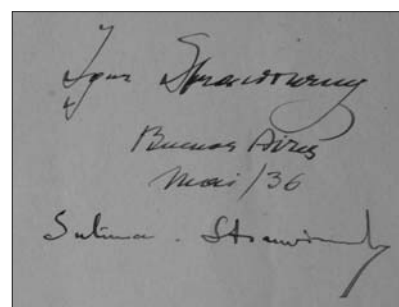 Igor Strawinsky
Buenos Aires
Mai/36
Sulima. Strawinsky